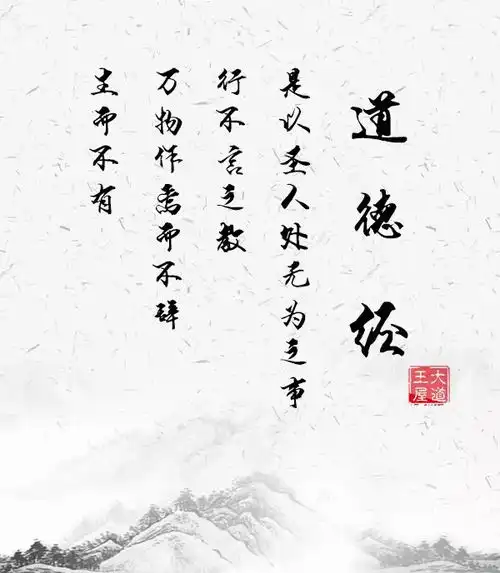 道德经
是以圣人处无为之事
行不言之教
万物作焉而不辞
生而不有
大道
王屋